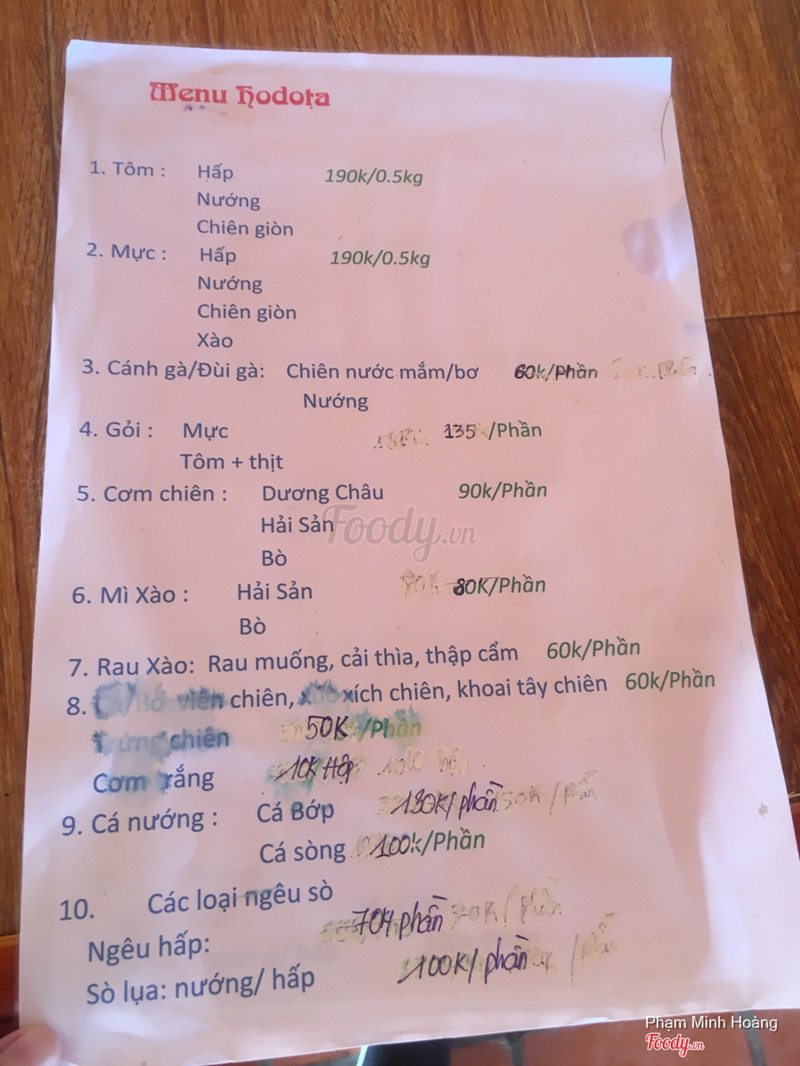 Menu Hodota
1. Tôm : Hấp 190k/0.5kg
Nướng
Chiên giòn
2. Mực : Hấp 190k/0.5kg
Nướng
Chiên giòn
Xào
3. Cánh gà/Đùi gà: Chiên nước mắm/bơ 60k/Phần
Nướng
4. Gỏi : Mực 135k/Phần
Tôm + thịt
5. Cơm chiên : Dương Châu 90k/Phần
Hải Sản
Bò
6. Mì Xào : Hải Sản 80K/Phần
Bò
7. Rau Xào: Rau muống, cải thìa, thập cẩm 60k/Phần
8. Cá/Bò viên chiên, xúc xích chiên, khoai tây chiên 60k/Phần
Trứng chiên 50K/Phần
Cơm trắng 10k Hộp
9. Cá nướng : Cá Bớp 130K/phần
Cá sòng 100k/Phần
10. Các loại ngêu sò
Ngêu hấp: 70k phần
Sò lụa: nướng/ hấp 100K/phần
Foody.vn
Phạm Minh Hoàng
Foody.vn